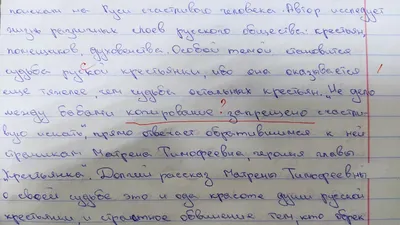 поискам на Руси счастливого человека. Автор исследует
жизнь различных слоев русского общества: крестьян,
помещиков, духовенства. Особой темой становится
судьба русской крестьянки, ибо она оказывается
еще тяжелее, чем судьба остальных крестьян. „Не дело
между бабами копирование запрещено счастли-
вую искать", прямо отвечает обратившимся к ней
странникам Матрена Тимофеевна, героиня главы
„Крестьянка". Долгий рассказ Матрены Тимофеевны
о своей судьбе это и ода красоте души русской
крестьянки, и страстное обвинение тем, кто обрек